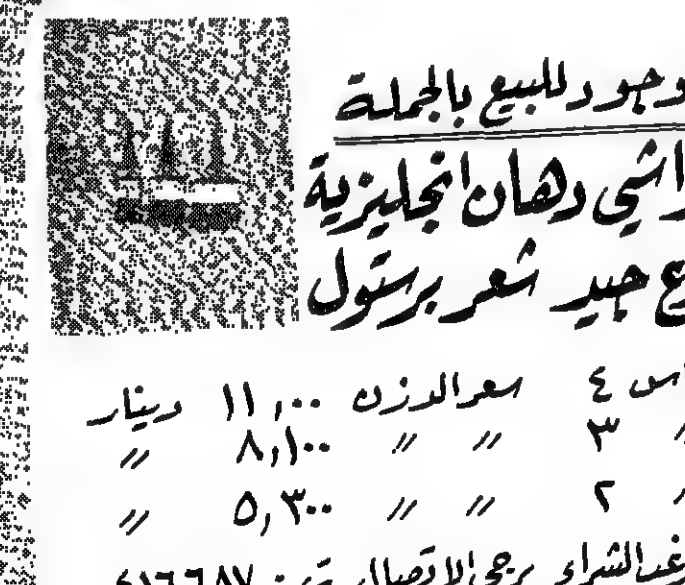 وجود للبيع بالجملة
اشي دهان انجليزية
ع جيد شعر برستول
اس ٤ سعر الدزن ١١,٠٠٠ دينار
〃 ٣ 〃 〃 ٨,١٠٠ 〃
〃 ٢ 〃 〃 ٥,٣٠٠ 〃
غب الشراء يرجى الاتصال